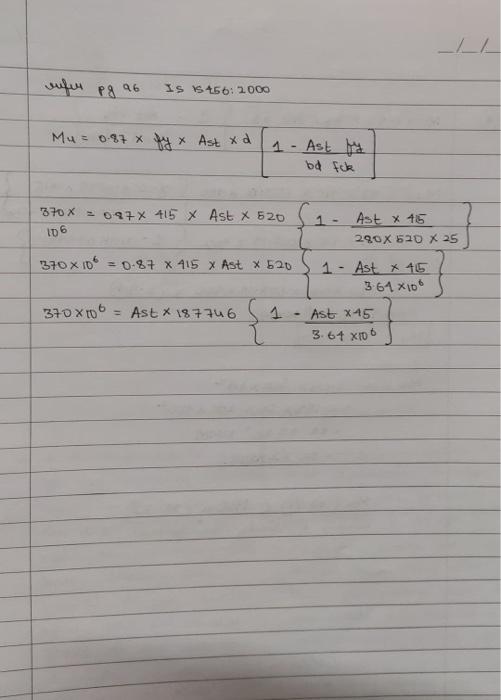 refer pg 96 IS 15456:2000
Mu = 0.87 × fy × Ast × d [1 - Ast fy / bd fck]
370 × 10⁶ = 0.87 × 415 × Ast × 520 {1 - Ast × 415 / 280 × 520 × 25}
370 × 10⁶ = 0.87 × 415 × Ast × 520 {1 - Ast × 415 / 3.64 × 10⁶}
370 × 10⁶ = Ast × 187746 {1 - Ast × 45 / 3.64 × 10⁶}